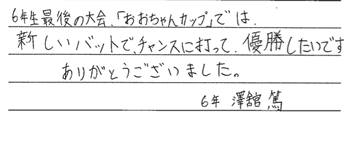 6年生最後の大会、「おおちゃんカップ」では、
新しいバットで、チャンスに打って、優勝したいです
ありがとうございました。
6年 澤舘 篤